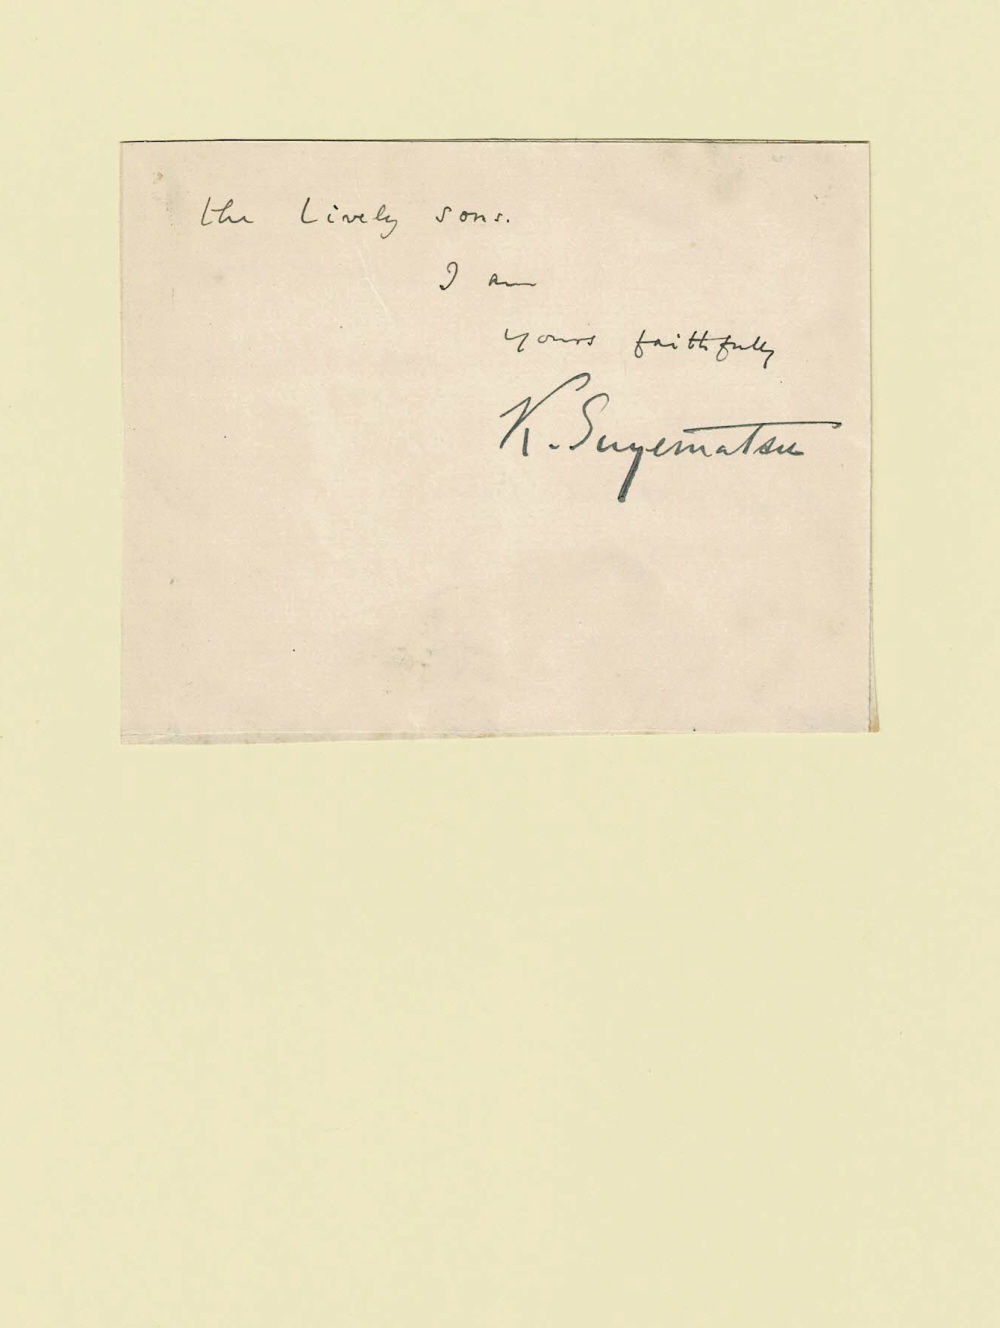 the Lively sons.
I am
yours faithfully
K. Suyematsu